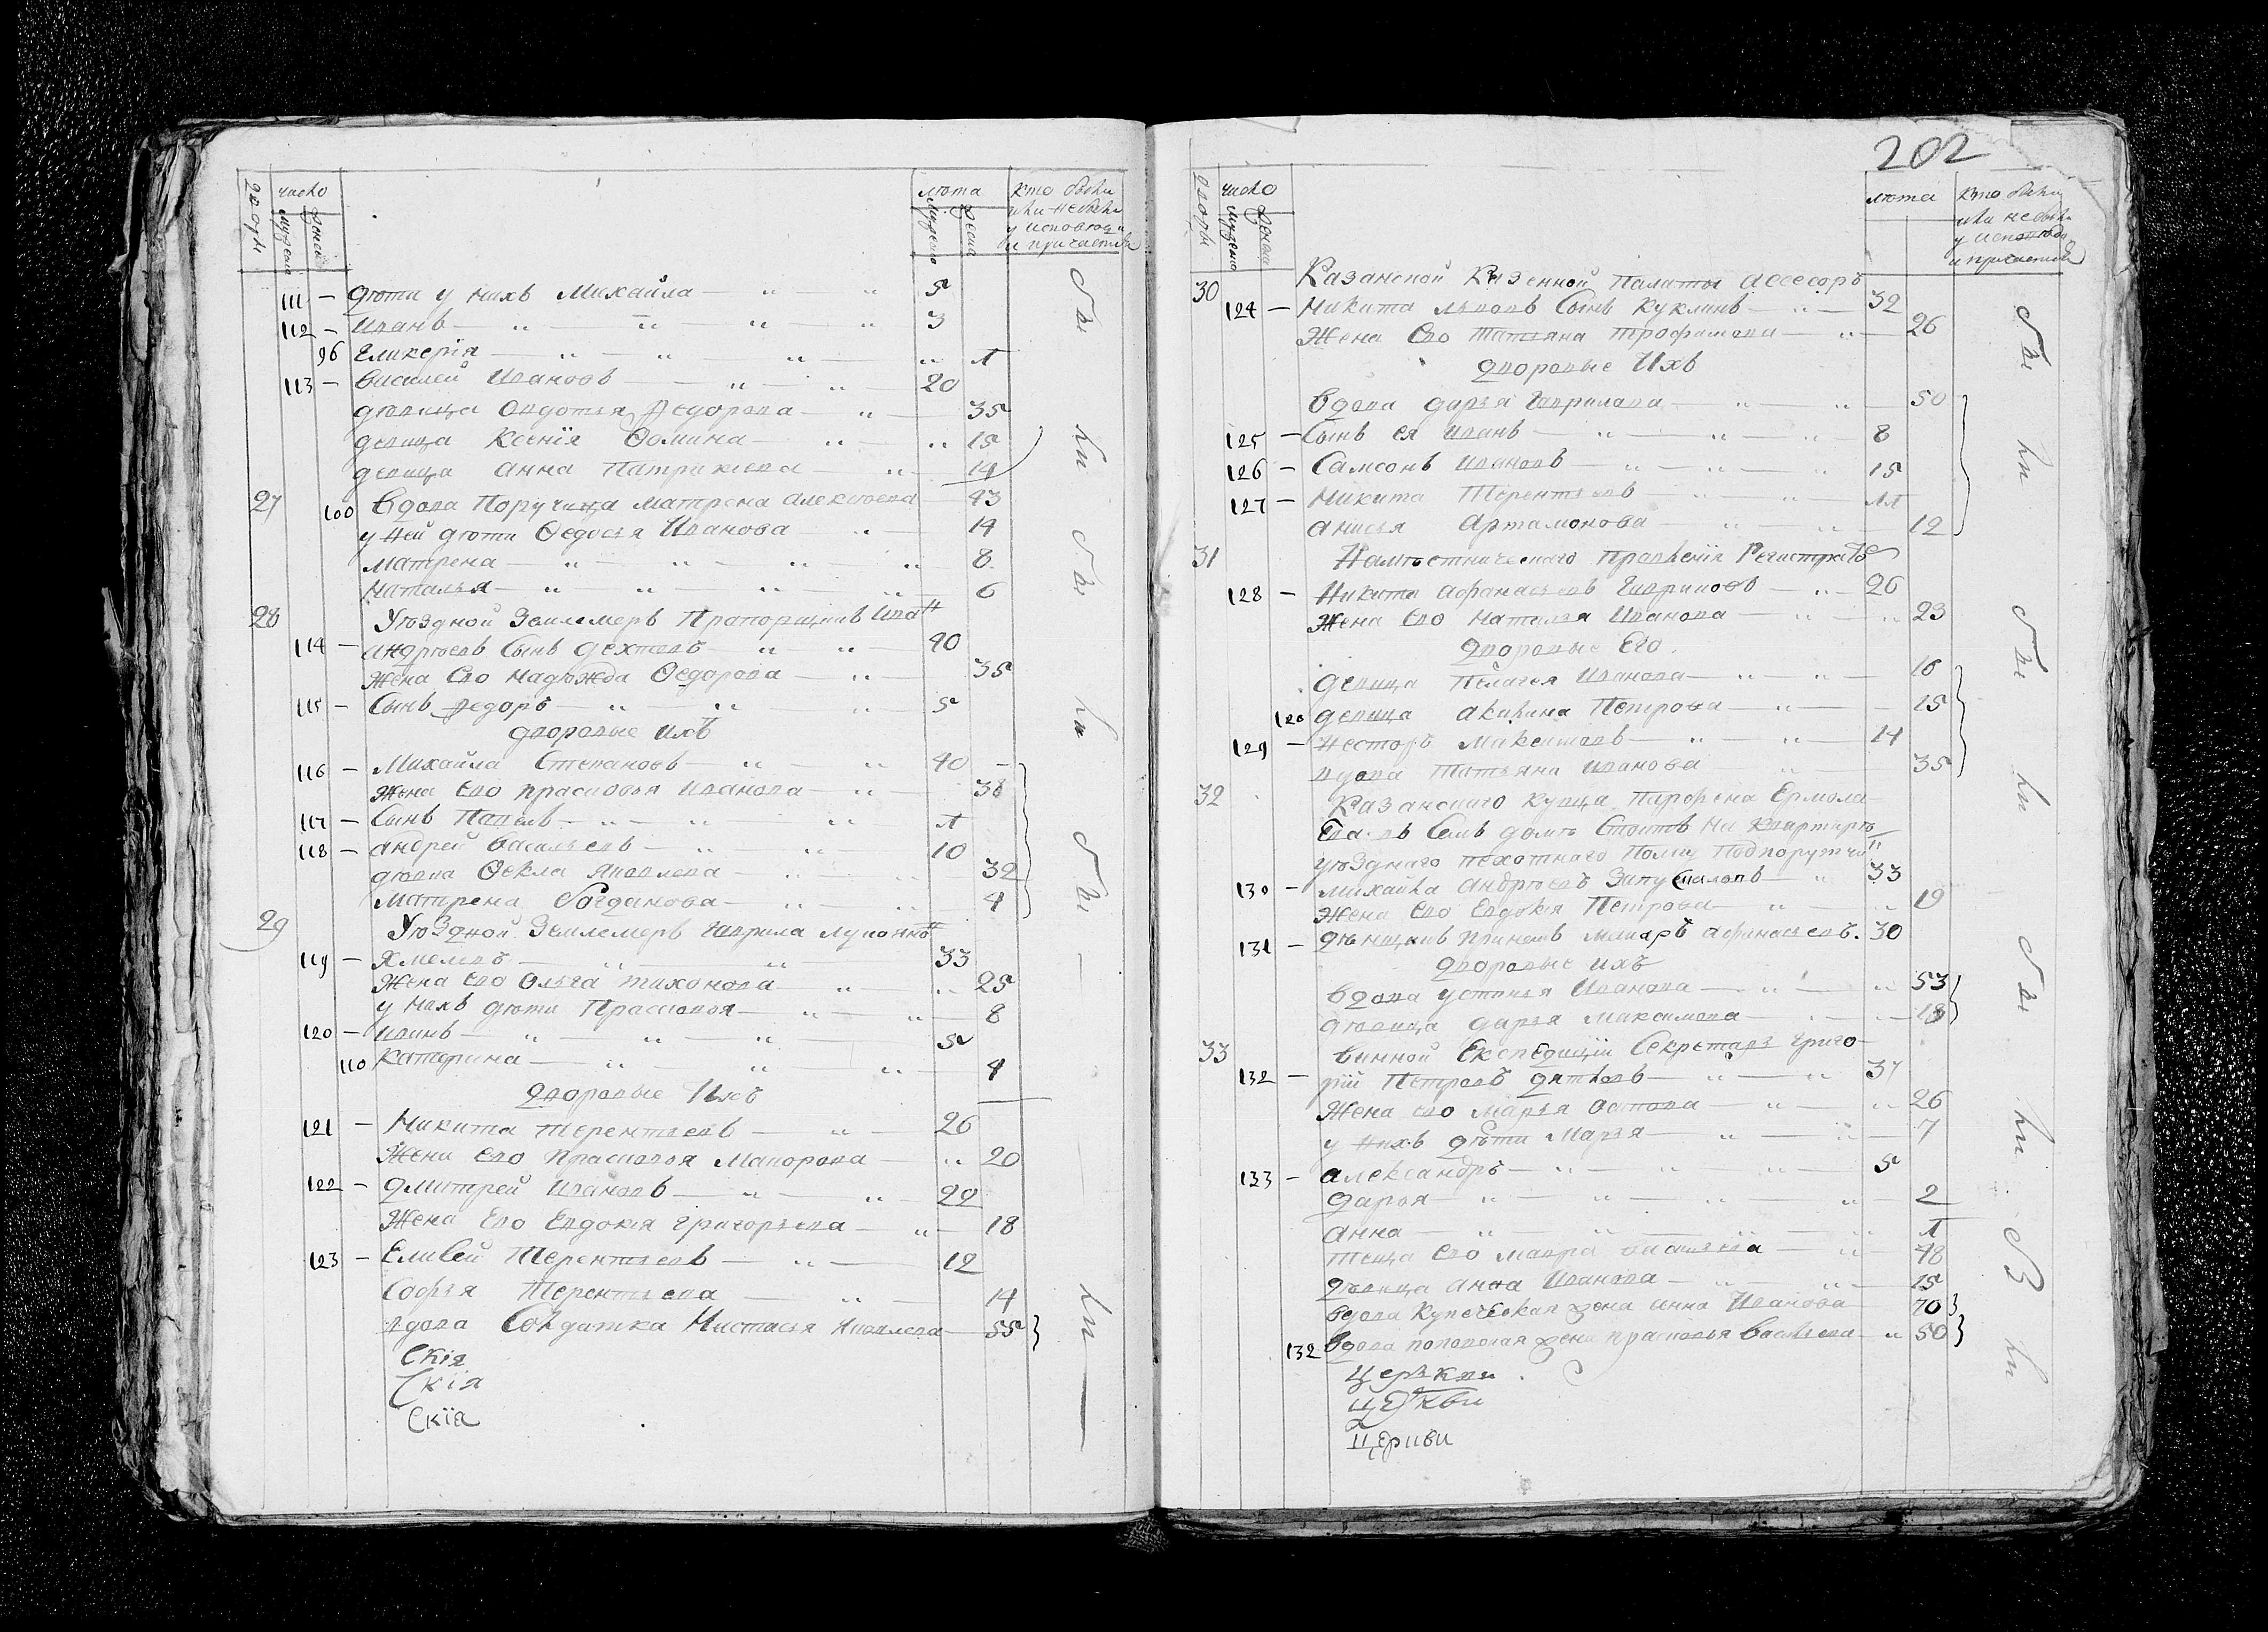 дворы
число
мужеска
женска
лѣта
мужеска
женска
кто были
или не были
у исповѣди
и причастия
111 – дѣти у нихъ Михайла 5
112 – Иванъ 3
96 Гликерїя 1
113 – Василей Ивановъ 20
дѣвица Овдотья Федорова 35
девица Ксенїя Ѳомина 15
девица Анна Патрикіева 14
27 100 Вдова Поручица Матрена Алексѣева 43
у ней дѣти Ѳедосья Иванова 14
Матрена 8
Наталья 6
28 Уѣздной Землемеръ Прапорщикъ Иван
114 – Андрѣевъ Сынъ Дехтевъ 40
Жена Ево Надѣжда Ѳедорова 35
115 – Сынъ Федоръ 5
дворовые ихъ
116 – Михайла Степановъ 40
Жена Ево Прасковья Иванова 38
117 – Сынъ Павелъ 1
118 – Андрей Васильевъ 10
дѣвка Ѳекла Яковлева 32
Матрена Богданова 4
29 Уѣздной Землемеръ Гаврила Лукоянов
119 – Хмелевъ 33
Жена Ево Ольга Тихонова 25
у нихъ дѣти Прасковья 8
120 – Иванъ 5
110 Катерина 4
Дворовые Ихъ
121 – Никита Терентьевъ 26
Жена Ево Прасковья Макорова 20
122 – Дмитрей Ивановъ 22
Жена Ево Евдокія Григорьева 18
123 – Елисей Терентьевъ 12
Софья Терентьева 14
вдова Солдатка Настасья Яковлева 55
Скія
Скія
Скїя
были
были
были
202
дворы
число
мужеска
женска
лѣта
кто были
или не были
у исповѣди
и причастия
30 Казанской Казенной Палаты Ассесоръ
124 – Никита Львовъ Сынъ Куклинъ 32
Жена Ево Татьяна Трофимова 26
дворовые Ихъ
Вдова Дарья Гаврилова 50
125 – Сынъ ея Иванъ 8
126 – Самсонъ Ивановъ 15
127 – Никита Терентьевъ 11
Анисья Артамонова 12
31 Намѣстническаго Правленія Регистраторъ
128 – Никита Афанасьевъ Гавриловъ 26
Жена Ево Наталья Иванова 23
Дворовые Его
девица Пелагея Иванова 16
120 девица Акилина Петрова 15
129 – Несторъ Максимовъ 14
вдова Татьяна Иванова 35
32 Казанскаго Купца Парфена Ермола-
ева въ Семъ домѣ Стоитъ на Квартирѣ
уѣзднаго пехотнаго Полку Подпоручи
130 – Михайла Андрѣевъ 33
Жена Ево Евдокія Петрова 19
131 – Дѣньщикъ Макаръ Афонасьевъ 30
Дворовые ихъ
Вдова Устинья Иванова 53
Дѣвица Дарья Максимова 18
33 Винной Експедицїи Секретарь Григо-
132 – рїй Петровъ Дятловъ 37
Жена ево Марья Осипова 26
у нихъ дѣти Марья 7
133 – Александръ 5
Дарья 2
Анна 1
теща Ево Мавра 48
Дѣвица Анна Иванова 15
Вдова Купеческая жена Анна Иванова 70
132 Вдова поповская жена Прасковья Васильева 50
Церькви
церкви
Церкви
были
были
были